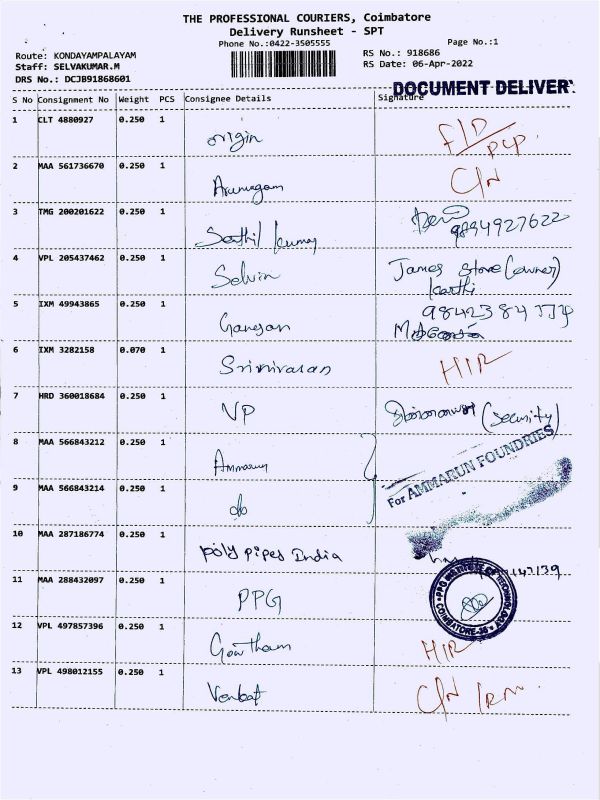 THE PROFESSIONAL COURIERS, Coimbatore
Delivery Runsheet - SPT
Phone No.:0422-3505555
Page No.:1
Route: KONDAYAMPALAYAM
RS No.: 918686
Staff: SELVAKUMAR.M
RS Date: 06-Apr-2022
DRS No.: DCJB91868601
DOCUMENT DELIVER
S No Consignment No Weight PCS Consignee Details Signature
1 CLT 4880927 0.250 1 origin F/D PCP
2 MAA 561736670 0.250 1 Arumugam C/N
3 TMG 200201622 0.250 1 Senthil kumar 9894927622
4 VPL 205437462 0.250 1 Selvin James store (owner)
Karthi
5 IXM 49943865 0.250 1 Ganesan
6 IXM 3282158 0.070 1 Srinivasan HIR
7 HRD 360018684 0.250 1 VP (Security)
8 MAA 566843212 0.250 1 Ammarun For AMMARUN FOUNDRIES
9 MAA 566843214 0.250 1 do
10 MAA 287186774 0.250 1 Poly pipes India
11 MAA 288432097 0.250 1 PPG PPG INSTITUTE OF TECHNOLOGY COIMBATORE-35
12 VPL 497857396 0.250 1 Gowtham HIR
13 VPL 498012155 0.250 1 Venkat C/N